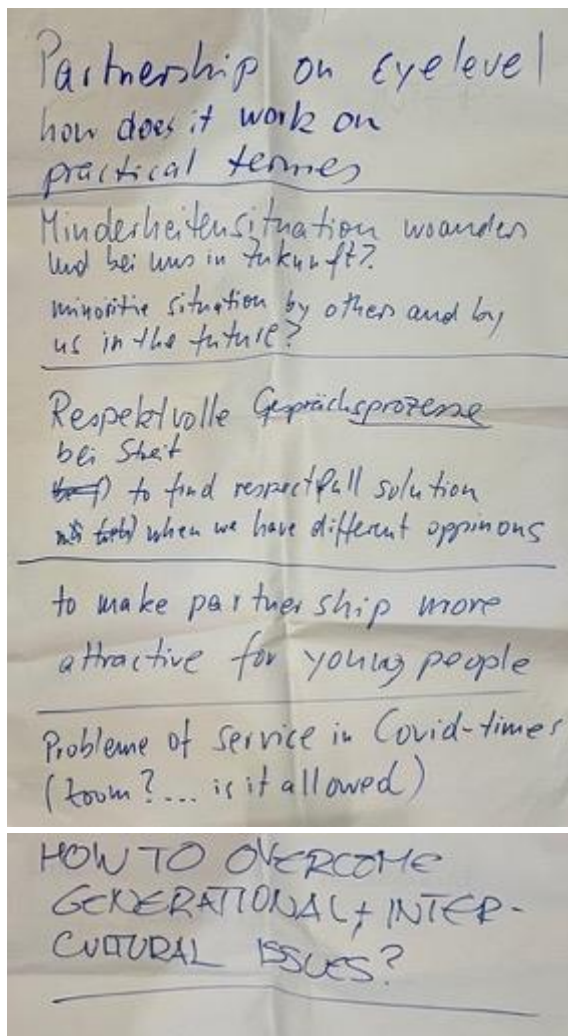 Partnership on Eyelevel
how does it work on
practical termes
Minderheitensituation woanders
und bei uns in Zukunft?
minoritie situation by others and by
us in the future?
Respektvolle Gesprächsprozesse
bei Streit
to find respectfull solution
when we have different oppinons
to make partnership more
attractive for young people
Probleme of service in Covid-times
(Zoom?... is it allowed)
HOW TO OVERCOME
GENERATIONAL + INTER-
CULTURAL ISSUES?